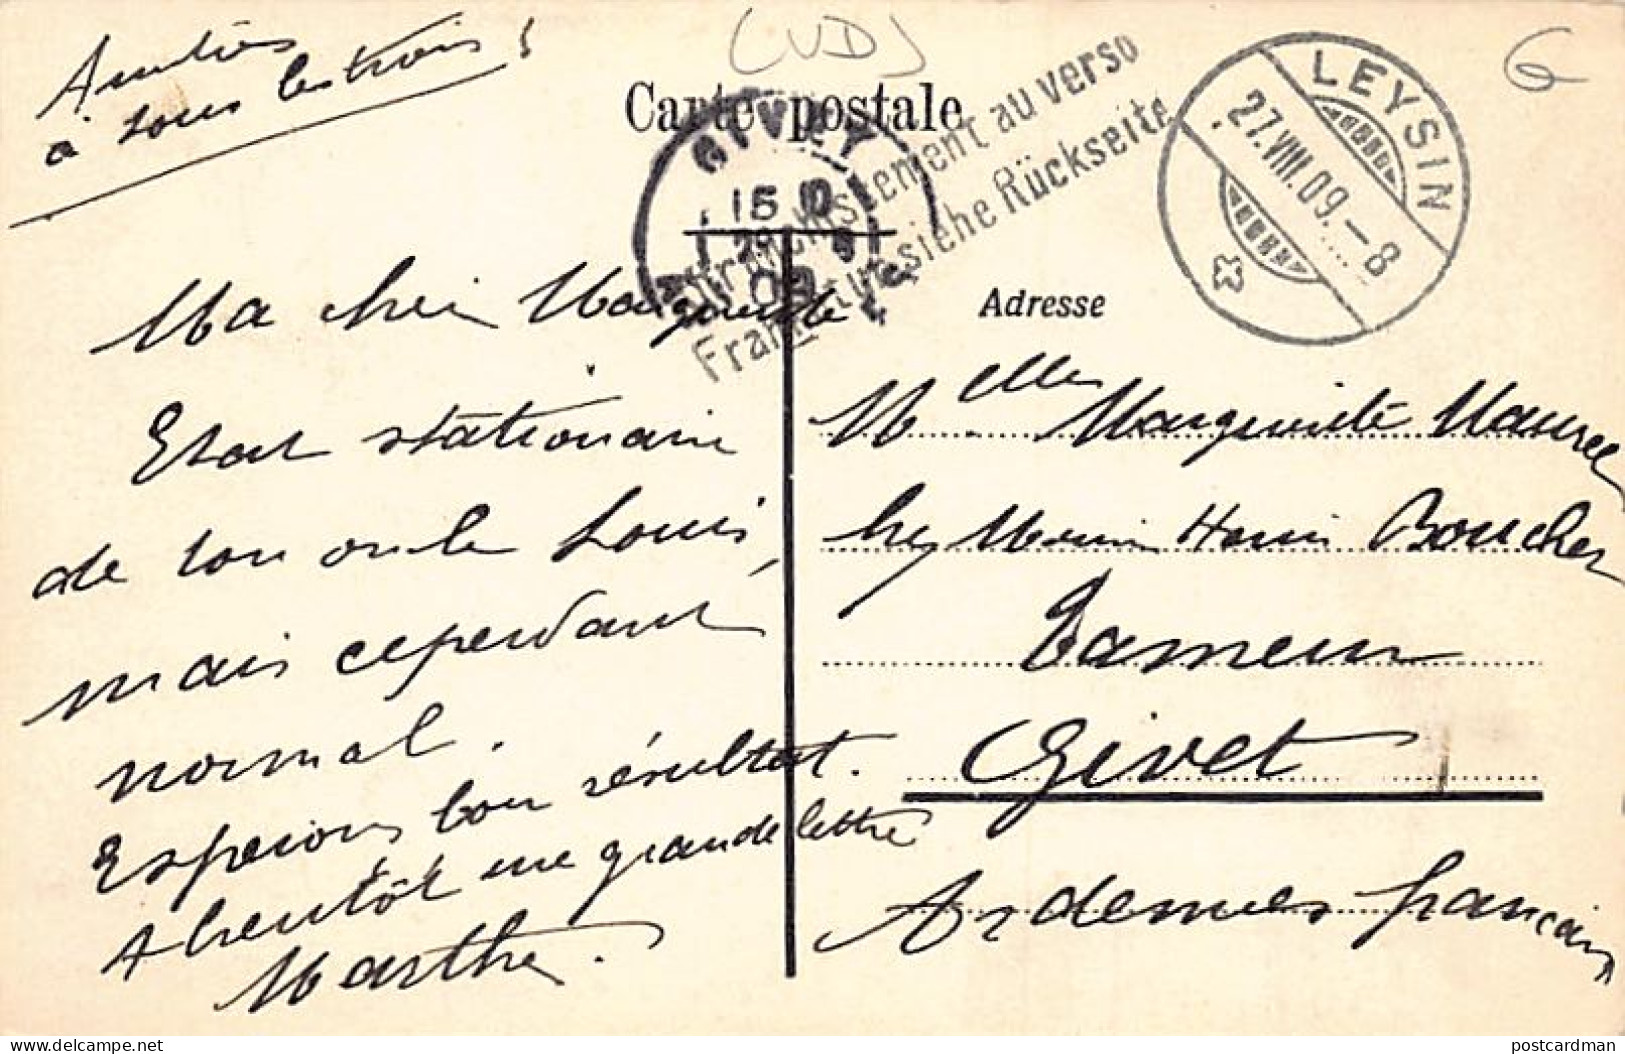 (VD)
6
Amitiés
à tous les trois !
Carte postale
Affranchissement au verso
Frankatur siehe Rückseite
LEYSIN
27.VIII.09.-8
GIVET
15
09
Ma chère Marguerite
Etat stationnaire
de ton oncle Louis,
mais cependant
normal.
Espérons bon résultat.
A bientôt une grande lettre
Marthe.
Adresse
Melle Marguerite Maurel
chez Henri Boucher
Givet
Ardennes françaises
postcardman